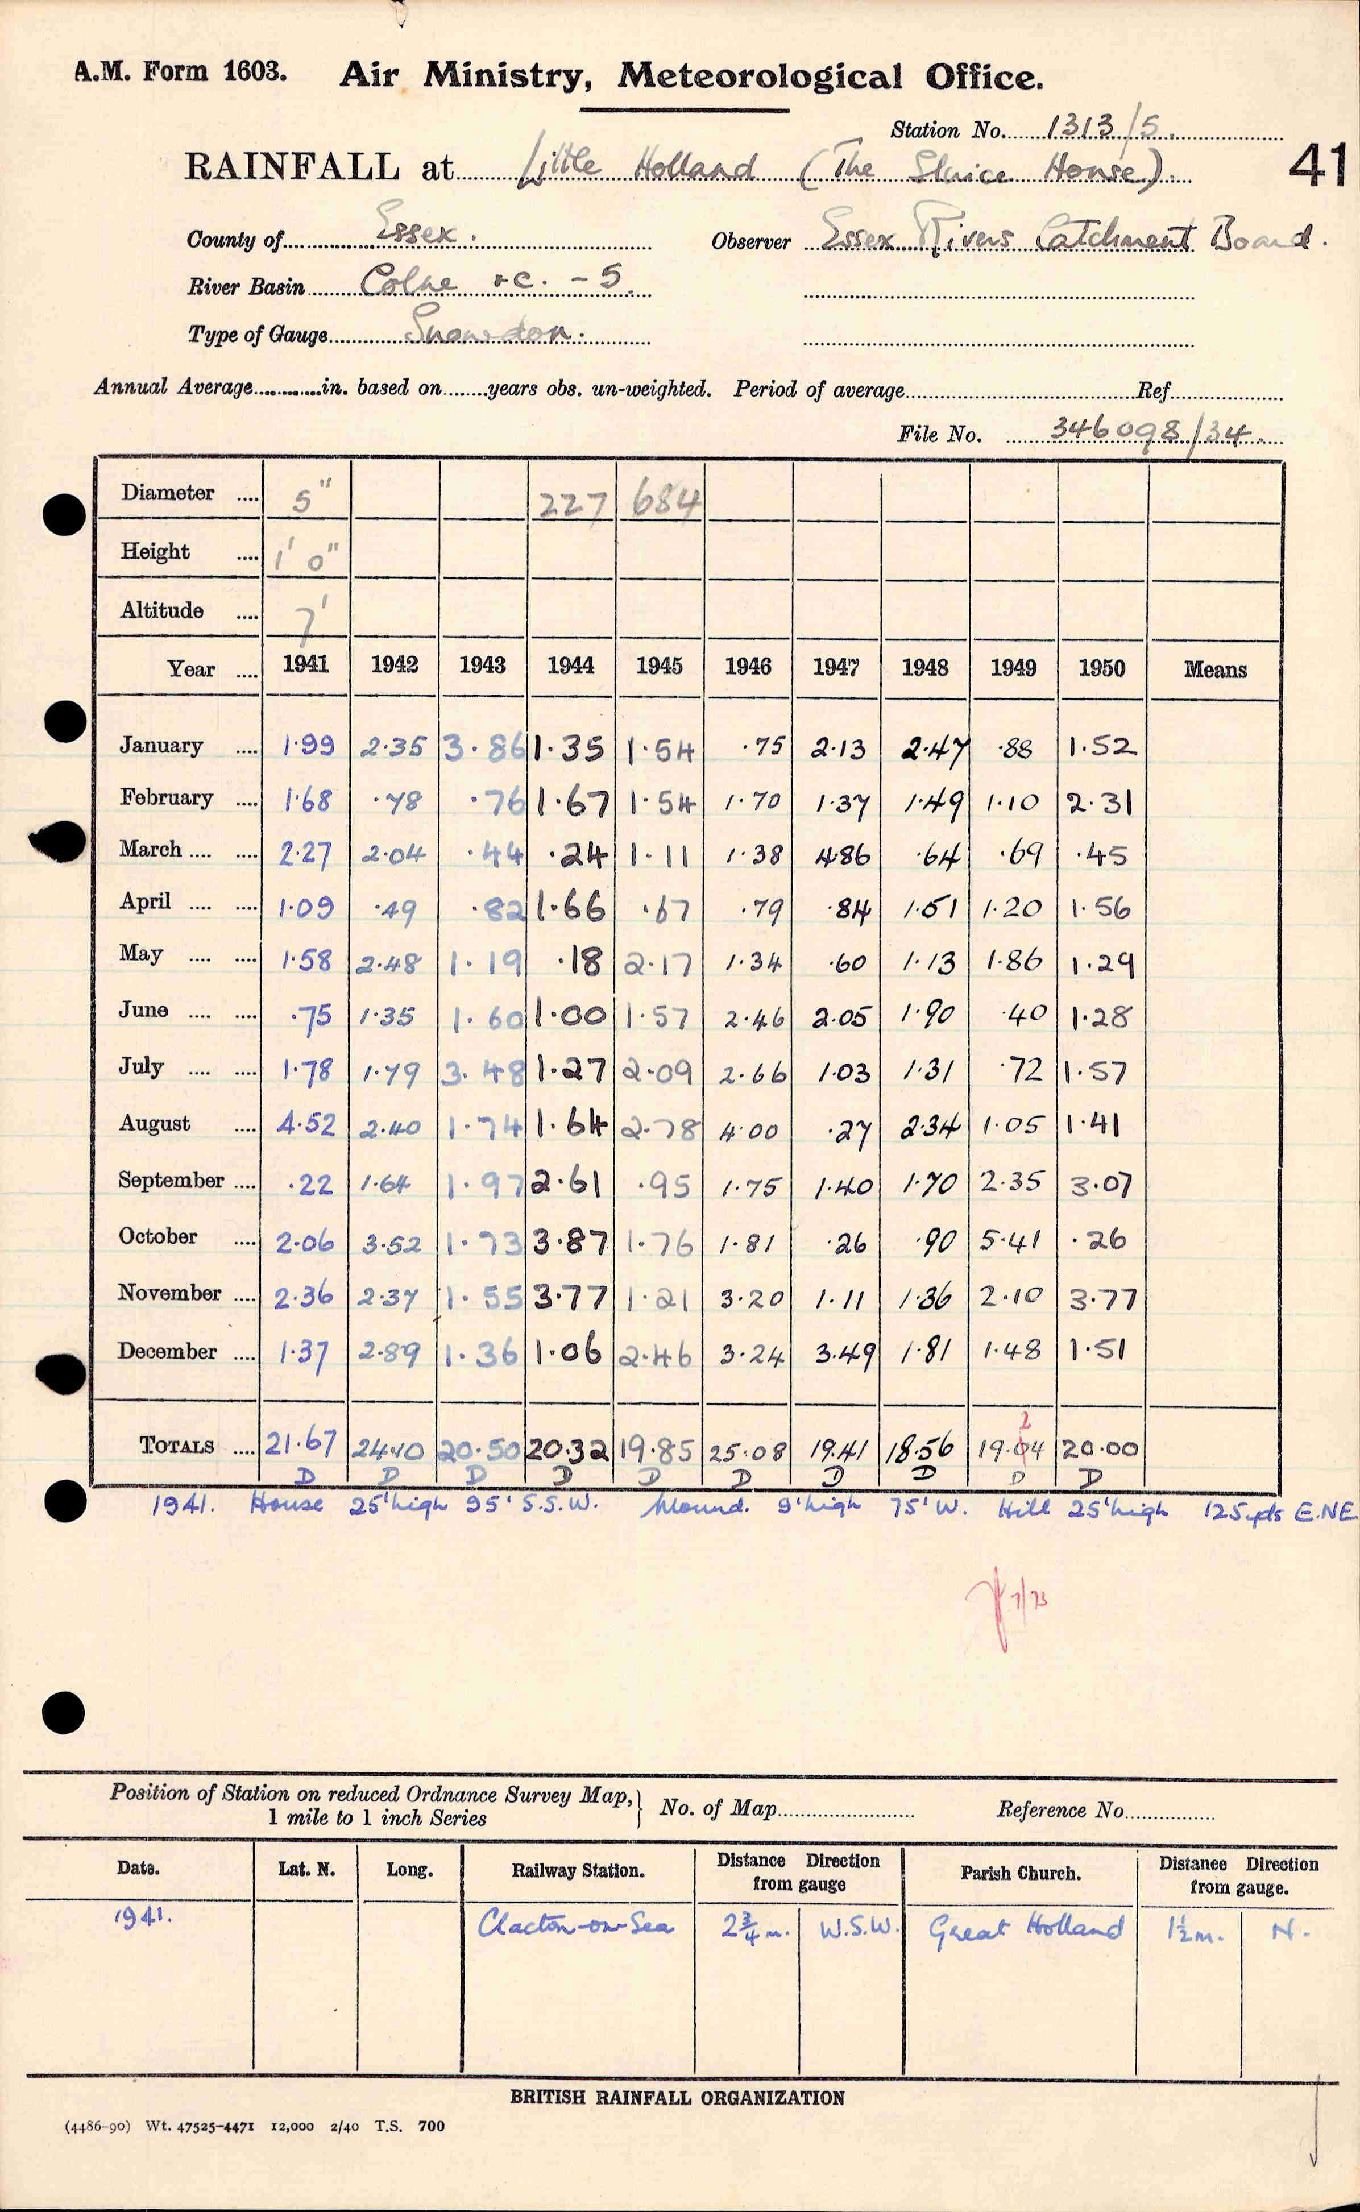 A.M. Form 1603. Air Ministry, Meteorological Office.
Station No. 1313/5.
RAINFALL at Little Holland (The Sluice House). 41
County of Essex. Observer Essex Rivers Catchment Board.
River Basin Colne &c. - 5.
Type of Gauge Snowdon.
Annual Average in. based on years obs. un-weighted. Period of average Ref
File No. 346098/34.
Diameter .... 5" 227 684
Height .... 1' 0"
Altitude .... 7'
Year .... 1941 1942 1943 1944 1945 1946 1947 1948 1949 1950 Means
January .... 1.99 2.35 3.86 1.35 1.54 .75 2.13 2.47 .88 1.52
February .... 1.68 .78 .76 1.67 1.54 1.70 1.37 1.49 1.10 2.31
March .... .... 2.27 2.04 .44 .24 1.11 1.38 4.86 .64 .69 .45
April .... .... 1.09 .49 .82 1.66 .67 .79 .84 1.51 1.20 1.56
May .... .... 1.58 2.48 1.19 .18 2.17 1.34 .60 1.13 1.86 1.29
June .... .... .75 1.35 1.60 1.00 1.57 2.46 2.05 1.90 .40 1.28
July .... .... 1.78 1.79 3.48 1.27 2.09 2.66 1.03 1.31 .72 1.57
August .... 4.52 2.40 1.74 1.64 2.78 4.00 .27 2.34 1.05 1.41
September .... .22 1.64 1.97 2.61 .95 1.75 1.40 1.70 2.35 3.07
October .... 2.06 3.52 1.73 3.87 1.76 1.81 .26 .90 5.41 .26
November .... 2.36 2.37 1.55 3.77 1.21 3.20 1.11 1.36 2.10 3.77
December .... 1.37 2.89 1.36 1.06 2.46 3.24 3.49 1.81 1.48 1.51
2
TOTALS .... 21.67 24.10 20.50 20.32 19.85 25.08 19.41 18.56 19.04 20.00
D D D D D D D D D D
1941. House 25' high 95' S.S.W. Mound. 9' high 75' W. Hill 25' high 125 yds E.NE
7/73
Position of Station on reduced Ordnance Survey Map, 1 mile to 1 inch Series No. of Map Reference No.
Date. Lat. N. Long. Railway Station. Distance Direction from gauge Parish Church. Distance Direction from gauge.
1941. Clacton-on-Sea 2¾ m. W.S.W. Great Holland 1½ m. N.
BRITISH RAINFALL ORGANIZATION
(4486-90) Wt. 47525-4471 12,000 2/40 T.S. 700